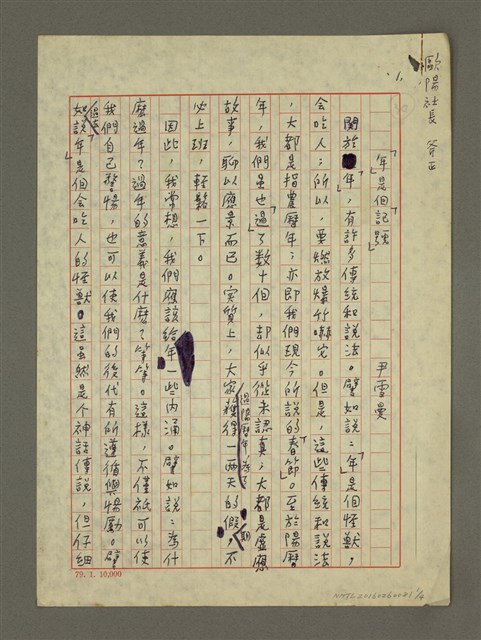 歐陽社長 斧正
1.
「年是個記號」
尹雪曼
關於「年」,有許多傳統和說法。譬如說:年是個怪獸,
會吃人;所以,要燃放爆竹嚇它。但是,這些傳統和說法
,大都是指農曆年;亦即我們現今所說的「春節」。至於陽曆
年,我們虽也「過」了数十個,却似乎從未認真;大都是虛應
故事,聊以應景而已。實質上,大家過陽曆年為了獲得一兩天的假期,不
必上班,輕鬆一下。
因此,我常想,我們應該給年一些内涵。譬如說:為什
麽過年?過年的意義是什麽?等等。這樣,不僅祇可以使
我們自己警惕,也可以使我們的後代有所遵循與惕勵。譬
如說「年」是個會吃人的怪獸。這虽然是个神話傳說,但仔細
79. 1. 10,000
NMTL20160060001 1/4